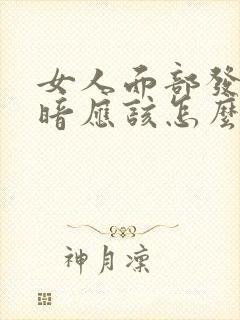 女人面部發
暗應該怎麼
神月凜